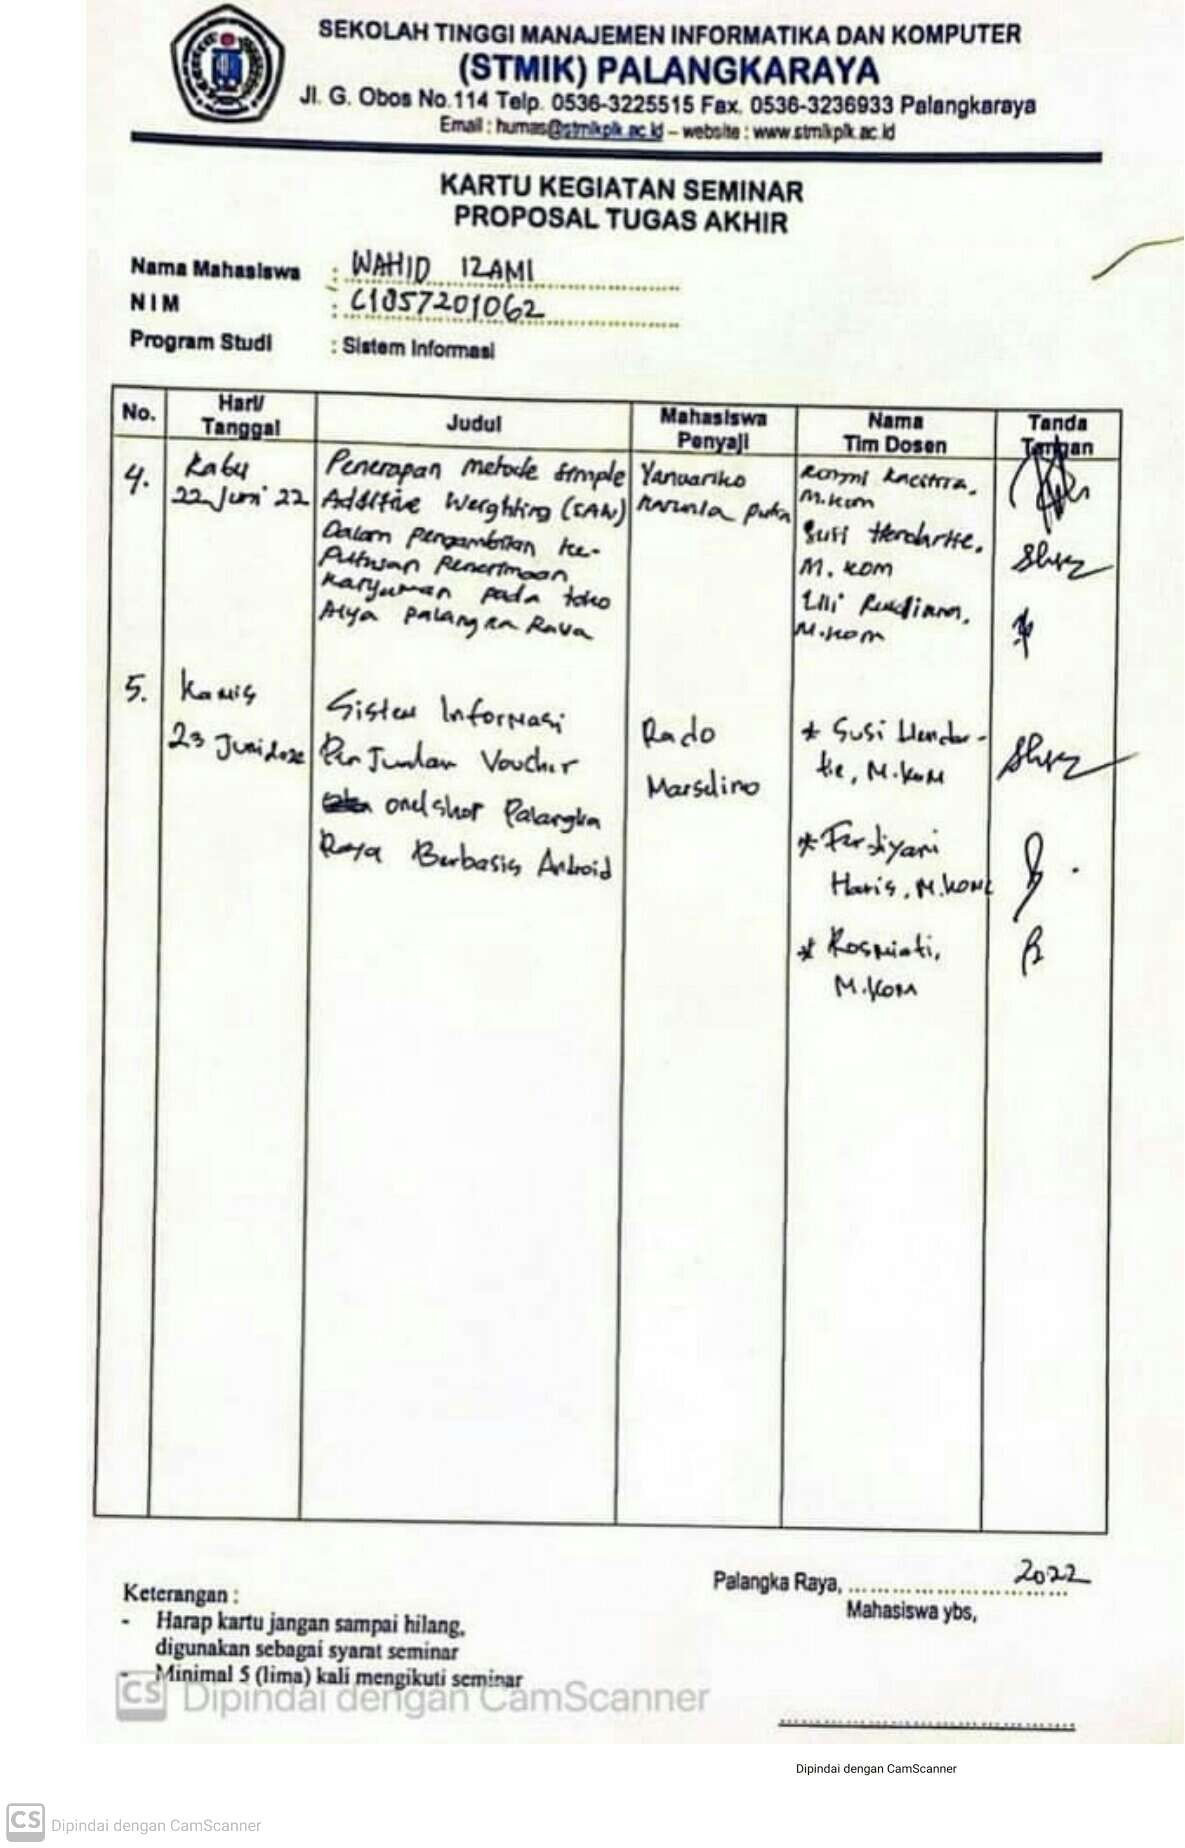 SEKOLAH TINGGI MANAJEMEN INFORMATIKA DAN KOMPUTER
(STMIK) PALANGKARAYA
Jl. G. Obos No.114 Telp. 0536-3225515 Fax. 0536-3236933 Palangkaraya
Email : humas@stmikplk.ac.id – website : www.stmikplk.ac.id
KARTU KEGIATAN SEMINAR
PROPOSAL TUGAS AKHIR
Nama Mahasiswa : WAHID IZAMI
NIM : C1857201062
Program Studi : Sistem Informasi
No. Hari/ Tanggal Judul Mahasiswa Penyaji Nama Tim Dosen Tanda Tangan
4. Rabu
22 Juni 22
Penerapan metode simple
Additive Weighting (SAW)
Dalam pengambilan ke-
Putusan Penerimaan
Karyawan pada toko
Alya palangka Raya
Yanuariko
Karunia putra
M.Kom
Susi Hendartie,
M. KOM
Lili Rusdiana,
M.Kom
5. Kamis
23 Juni 2022
Sistem Informasi
Penjualan Voucher
onelshop Palangka
Raya Berbasis Android
Rado
Marselino
* Susi Hendar-
tie, M.KOM
* Ferdiyani
Haris, M.KOM
* Rosmiati,
M.KOM
Palangka Raya, 2022
Mahasiswa ybs,
Keterangan :
- Harap kartu jangan sampai hilang,
digunakan sebagai syarat seminar
- Minimal 5 (lima) kali mengikuti seminar
CS Dipindai dengan CamScanner
Dipindai dengan CamScanner
CS Dipindai dengan CamScanner